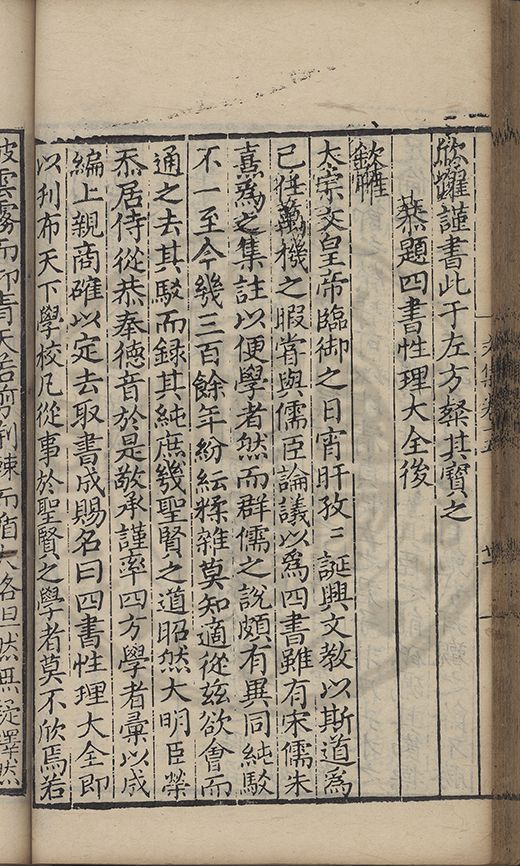 謹書此于左方粲其寶之
恭題四書性理大全後
欽惟
太宗文皇帝臨御之日宵旰孜〻誕興文教以斯道為
已任萬機之暇嘗與儒臣論議以為四書雖有宋儒朱
熹為之集註以便學者然而群儒之說頗有異同純駁
不一至今幾三百餘年紛紜糅雜莫知適從茲欲會而
通之去其駁而録其純庶幾聖賢之道昭然大明臣榮
忝居侍從恭奉德音於是敬承謹率四方學者彙以成
編上親商確以定去取書成賜名曰四書性理大全即
以刋布天下學校凡從事於聖賢之學者莫不欣焉若